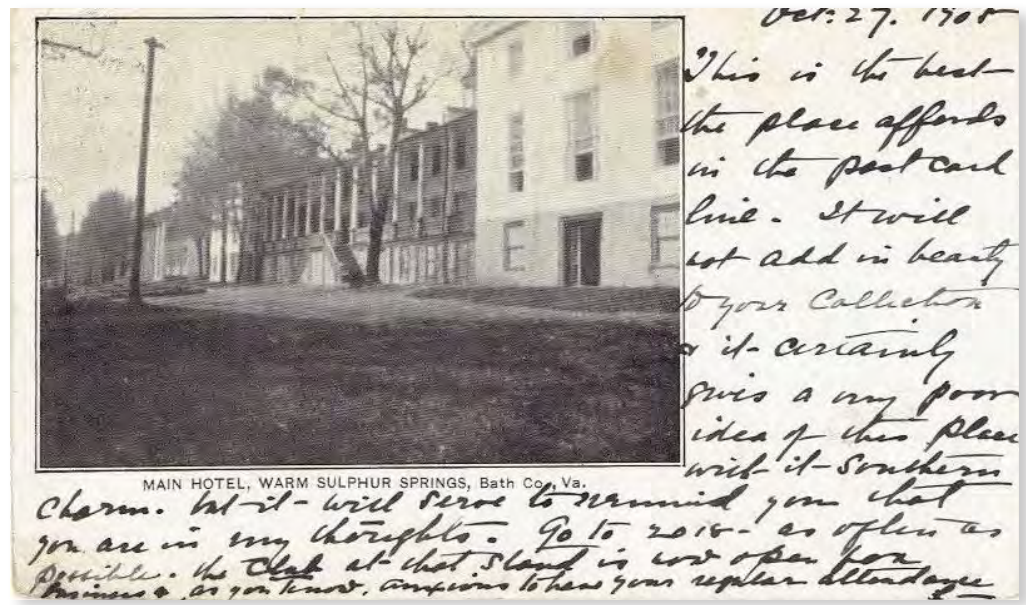 Oct. 27. 1908
This is the best
the place affords
in the post card
line. It will
not add in beauty
to your Collection
& it certainly
gives a very poor
idea of this place
with it Southern
MAIN HOTEL, WARM SULPHUR SPRINGS, Bath Co., Va.
Charm. but it will serve to remind you that
you are in my thoughts. Go to 2018 as often as
possible. the Club at that Stand is now open for
business & as you know, anxious to have your regular attendance